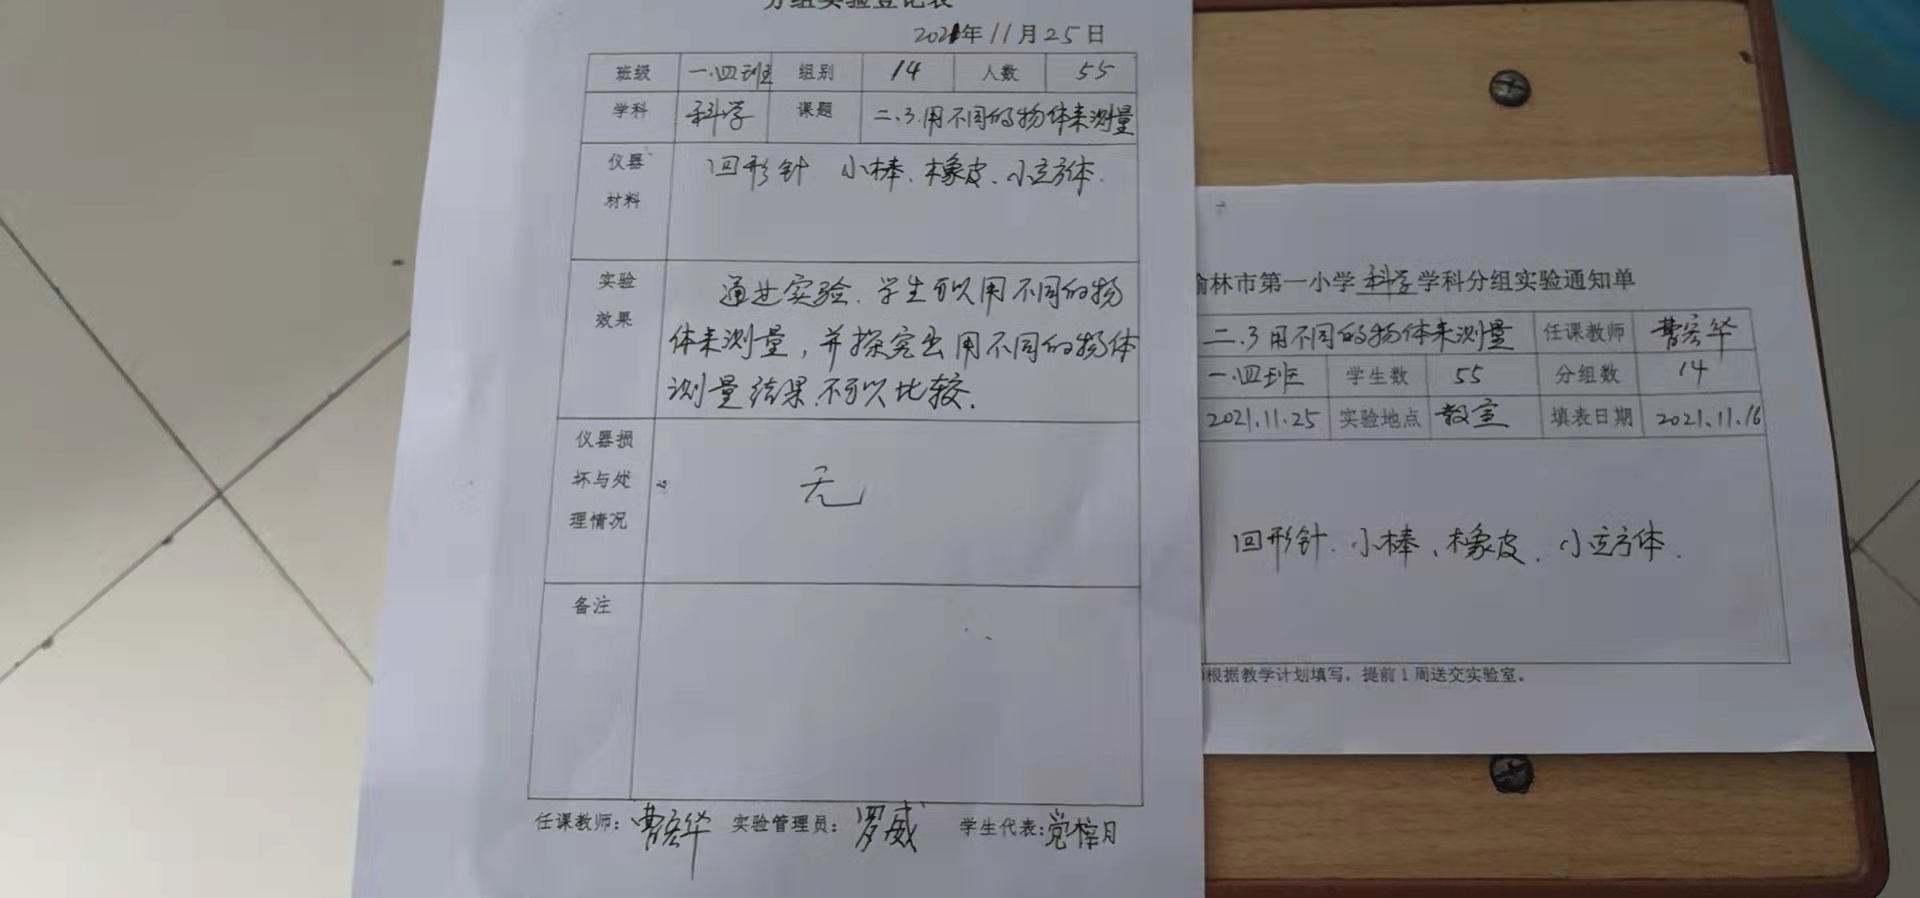 分组实验登记表
2021年11月25日
班级 一.四班 组别 14 人数 55
学科 科学 课题 二、3.用不同的物体来测量
仪器材料 回形针 小棒、橡皮、小立方体.
实验效果 通过实验.学生可以用不同的物
体来测量,并探究出用不同的物体
测量结果.不可以比较.
仪器损坏与处理情况 无
备注
任课教师:曹宏华 实验管理员:罗威 学生代表:党梓月
榆林市第一小学科学学科分组实验通知单
二.3用不同的物体来测量 任课教师 曹宏华
一.四班 学生数 55 分组数 14
2021.11.25 实验地点 教室 填表日期 2021.11.16
回形针.小棒、橡皮.小立方体.
根据教学计划填写，提前1周送交实验室。